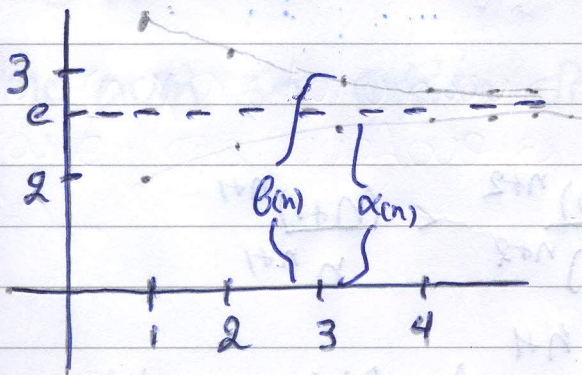 3
e
2
β(n) α(n)
1 2 3 4